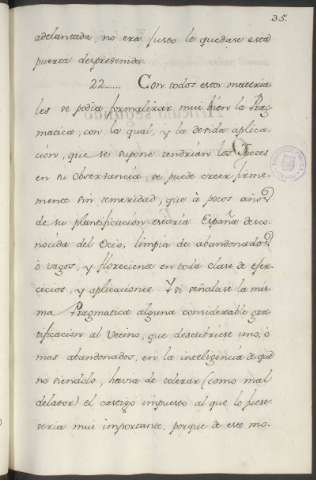 35.
adelantada, no era justo lo quedase esta
puerta desprevenida.
22..... Con todos estos materia
les se podia formalizar mui bien la Prag
matica, con la qual, y la devida aplica
ción, que se supone tendrian los Jueces
en su observancia, se puede creer firme
mente sin temeridad, que á pocos años
de su plantificación estaría España desco
nocida del Ocio, limpia de abandonados
ó vagos, y floreciente en toda clase de exer
cicios, y aplicaciones. Y si señalase la mis
ma Pragmatica alguna considerable gra
tificacion al Vecino, que descubriese uno, ó
mas abandonados, en la inteligencia de que
no siendolo, havia de tolerar (como mal
delator) el castigo impuesto al que lo fuese
sería mui importante, porque de este mo-